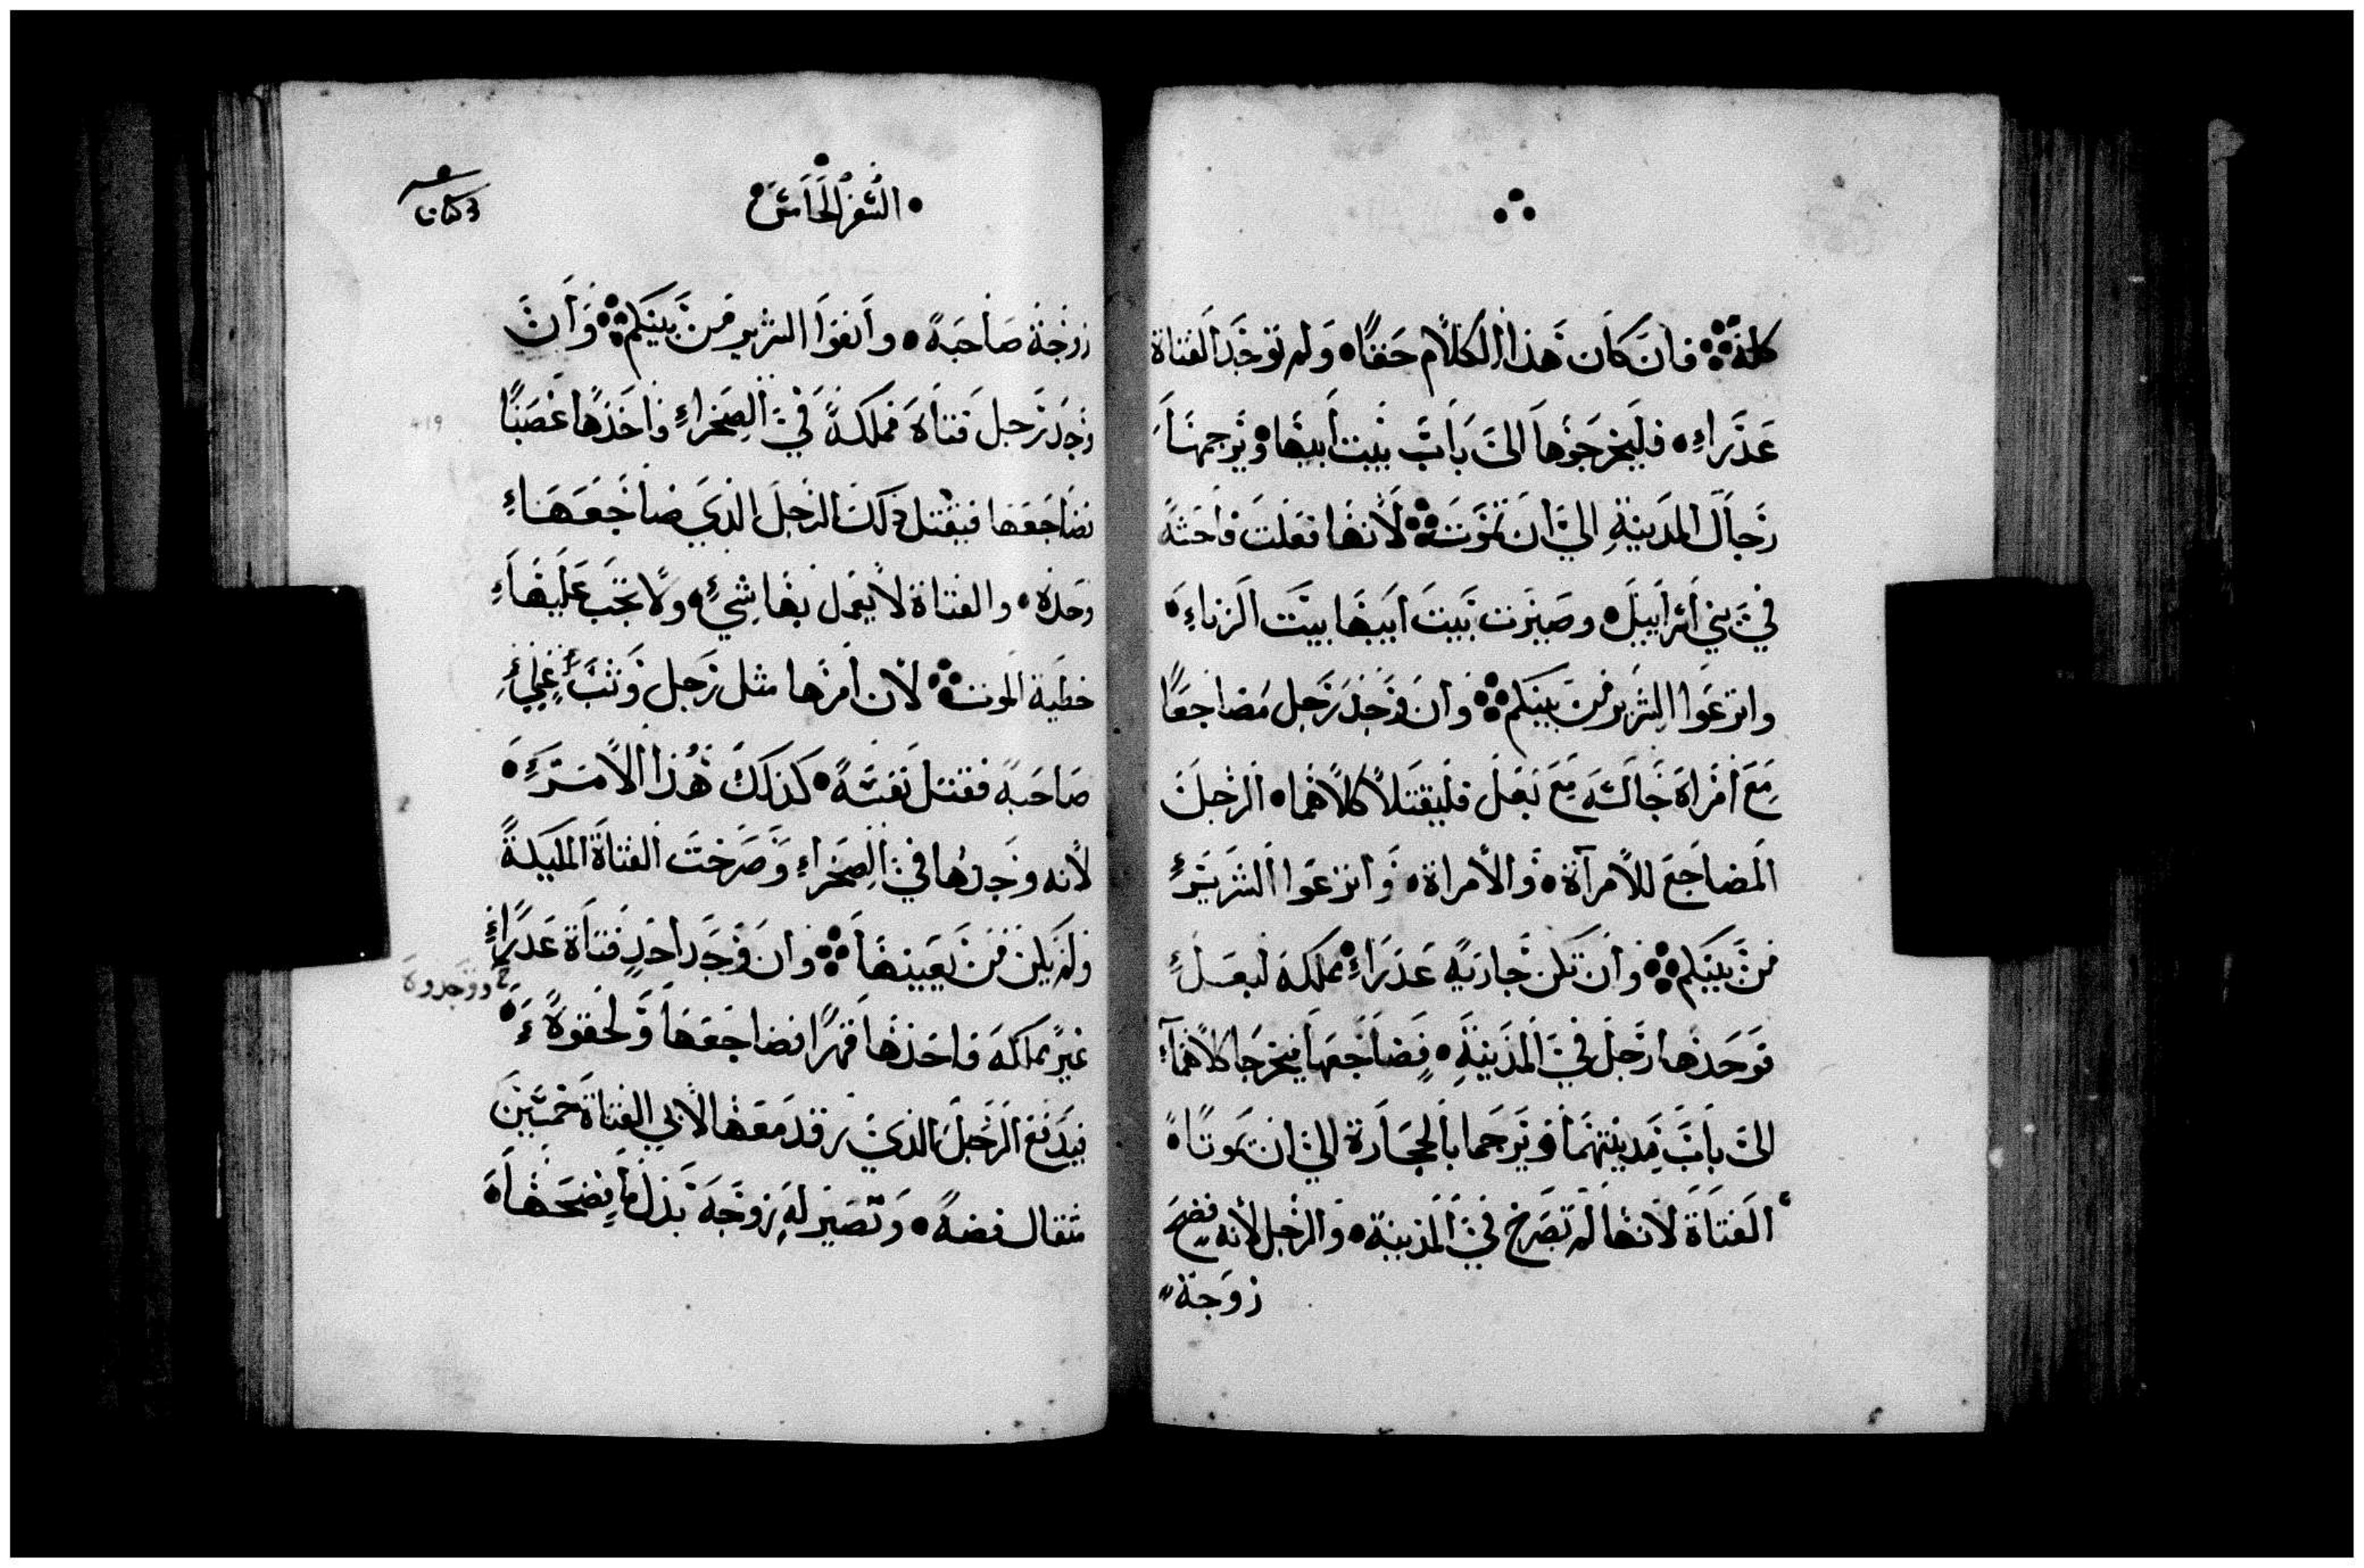 كله فان كان هذا الكلام حقًا ولم توجد الفتاة
عذراء فليخرجوها الى باب بيت ابيها ويرجمها
رجال المدينة الي ان تموت لانها فعلت فاحشة
في بني اسراييل وصيرت بيت ابيها بيت الزناء
وانزعوا الشرير من بينكم وان وجد رجل مضاجعًا
مع امراة جالسه مع بعل فليقتلا كلاهما الرجل
المضاجع للامرآة والامراة وانزعوا الشرير
من بينكم وان تكن جاريه عذراء مملكه لبعل
فوجدها رجل في المدينة فضاجعها فيخرجا كلاهما
الى باب مدينتهما ويرجما بالحجارة الي ان يموتا
الفتاة لانها لم تصرخ في المدينة والرجل لانه فضح
زوجة
السفر الخامس
زوجة صاحبه وانفوا الشرير من بينكم وان
وجد رجل فتاة مملكة في الصحراء فاخذها غصبًا
فضاجعها فيقتل ذلك الرجل الذي ضاجعها
وحده والفتاة لا يعمل بها شيء ولا تجب عليها
خطية الموت لان امرها مثل رجل وثب علي
صاحبه فقتل نفسه كذلك هذا الامر
لانه وجدها في الصحراء وصرخت الفتاة المليكة
ولم يكن من يعينها وان وجد احد فتاة عذراء
غير مملكه فاخذها قهرًا فضاجعها ولحقوه
ووجدوه
فيدفع الرجل الذي رقد معها لابي الفتاة خمسين
مثقال فضه وتصير له زوجه بدل ما فضحها